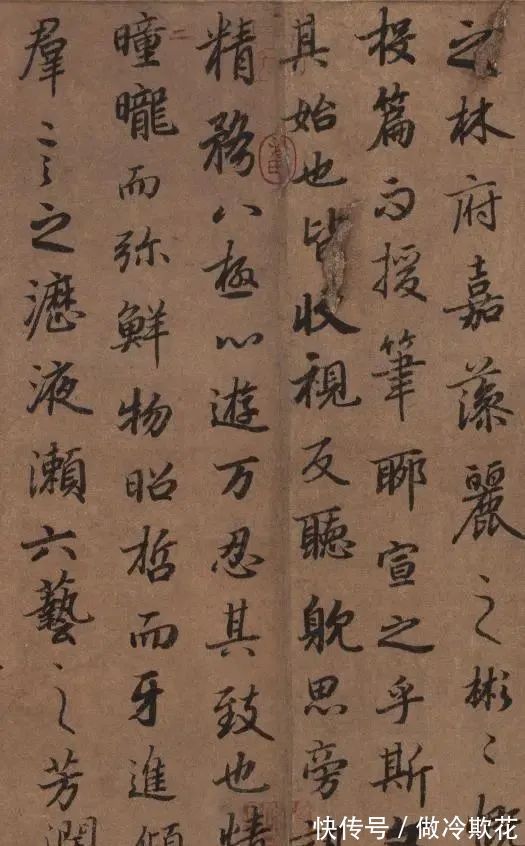 之林府嘉藻麗之彬〻
投篇而援筆聊宣之乎斯
其始也皆收視反聽躭思旁
精務八極心遊万忍其致也情
曈曨而弥鮮物昭哲而牙進傾
羣言之瀝液瀨六藝之芳潤
快传号 / 做冷欺花